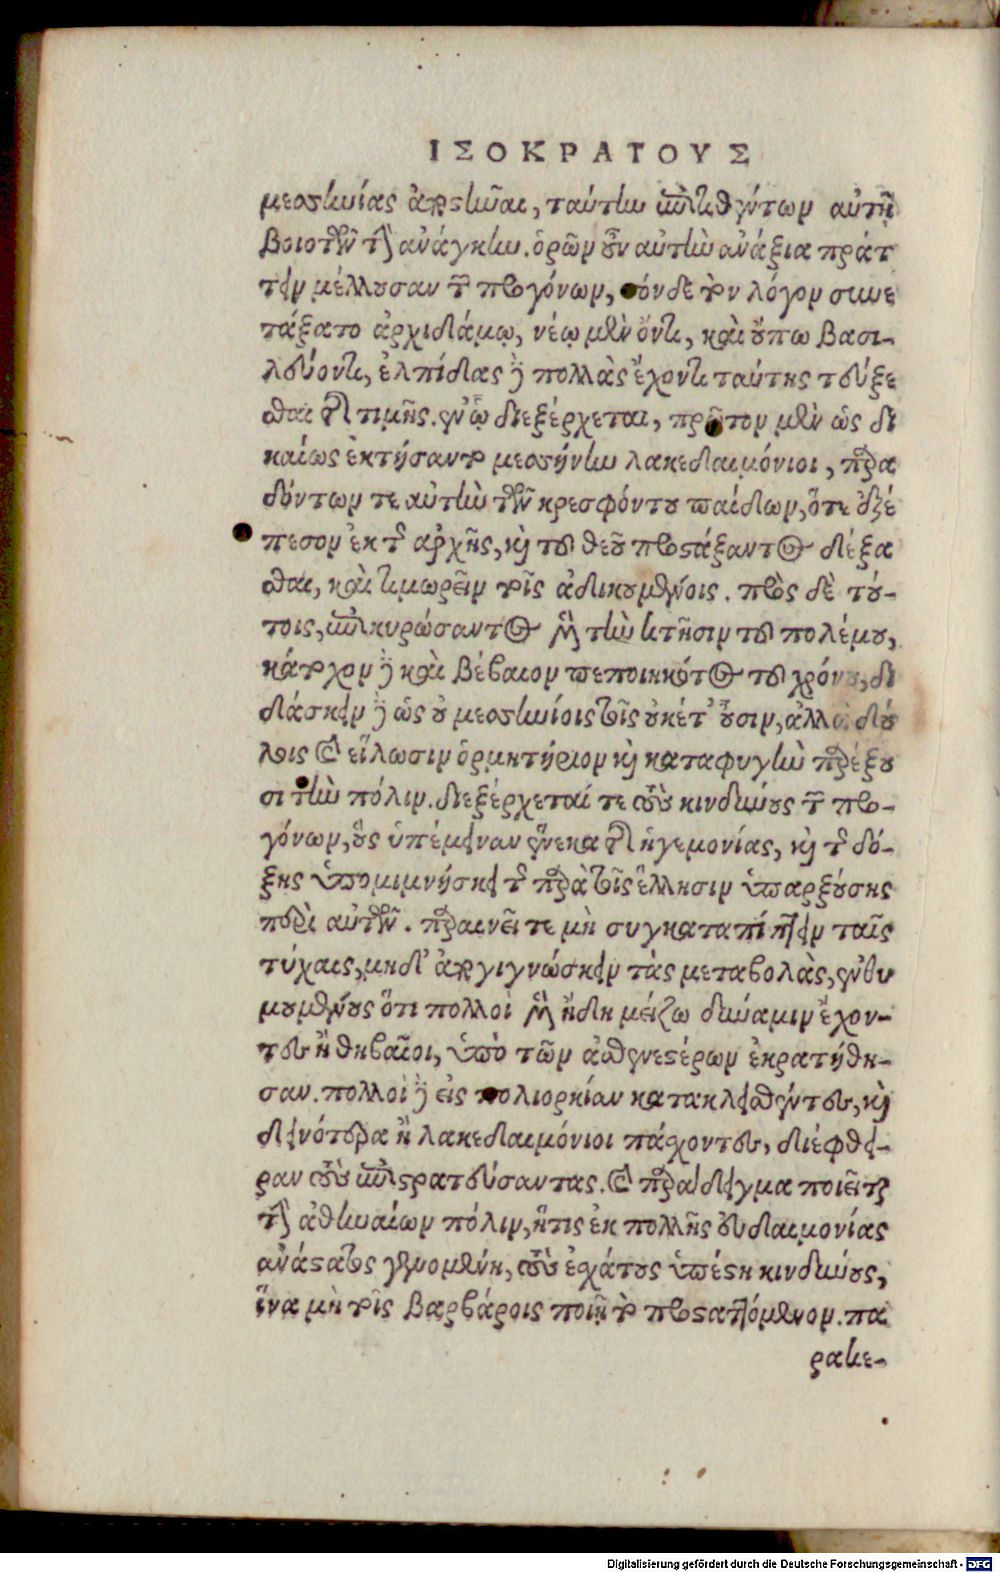 ΙΣΟΚΡΑΤΟΥΣ
μεσσηνίας ἀποστῆναι, ταύτην ἐπιτιθέντων αὐτῇ
βοιοτῶν τὴν ἀνάγκην. ὁρῶν οὖν αὐτὴν ἀνάξια πράτ
τειν μέλλουσαν τῶν προγόνων, τόνδε τὸν λόγον συνε
τάξατο ἀρχιδάμῳ, νέῳ μὲν ὄντι, καὶ οὔπω βασι-
λεύοντι, ἐλπίδας δὲ πολλὰς ἔχοντι ταύτης τεύξε
σθαι τῆς τιμῆς. ἐν ᾧ διεξέρχεται, πρῶτον μὲν ὡς δι
καίως ἐκτήσαντο μεσσήνην λακεδαιμόνιοι, παρα
δόντων τε αὐτὴν τῶν κρεσφόντου παίδων, ὅτε ἐξέ
πεσον ἐκ τῆς ἀρχῆς, καὶ τοῦ θεοῦ προστάξαντος δέξα
σθαι, καὶ τιμωρεῖν τοῖς ἀδικουμένοις. πρὸς δὲ τού-
τοις, ἐπικυρώσαντος μὲν τὴν κτῆσιν τοῦ πολέμου,
κάτοχον δὲ καὶ βέβαιον πεποιηκότος τοῦ χρόνου, δι
δάσκειν δὲ ὡς οὐ μεσσηνίοις τοῖς οὐκέτ' οὖσιν, ἀλλὰ δού
λοις καὶ εἵλωσιν ὁρμητήριον καὶ καταφυγὴν παρέξου
σι τὴν πόλιν. διεξέρχεταί τε τοὺς κινδύνους τῶν προ-
γόνων, οὓς ὑπέμειναν ἕνεκα τῆς ἡγεμονίας, καὶ τῆς δό-
ξης ὑπομιμνήσκει τῆς παρὰ τοῖς ἕλλησιν ὑπαρξούσης
περὶ αὐτῶν. παραινεῖ τε μὴ συγκαταπίπτειν ταῖς
τύχαις, μηδ' ἀπογιγνώσκειν τὰς μεταβολὰς, ἐνθυ
μουμένους ὅτι πολλοὶ μὲν ἤδη μείζω δύναμιν ἔχον-
τες ἢ θηβαῖοι, ὑπὸ τῶν ἀσθενεστέρων ἐκρατήθη-
σαν. πολλοὶ δὲ εἰς πολιορκίαν κατακλεισθέντες, καὶ
δεινότερα ἢ λακεδαιμόνιοι πάσχοντες, διέφθει-
ραν τοὺς ἐπιστρατεύσαντας. καὶ παράδειγμα ποιεῖται
τὴν ἀθηναίων πόλιν, ἥτις ἐκ πολλῆς εὐδαιμονίας
ἀνάστατος γενομένη, τοὺς ἐσχάτους ὑπέστη κινδύνους,
ἵνα μὴ τοῖς βαρβάροις ποιῇ τὸ προσταττόμενον. πα
ρακε-
Digitalisierung gefördert durch die Deutsche Forschungsgemeinschaft - DFG